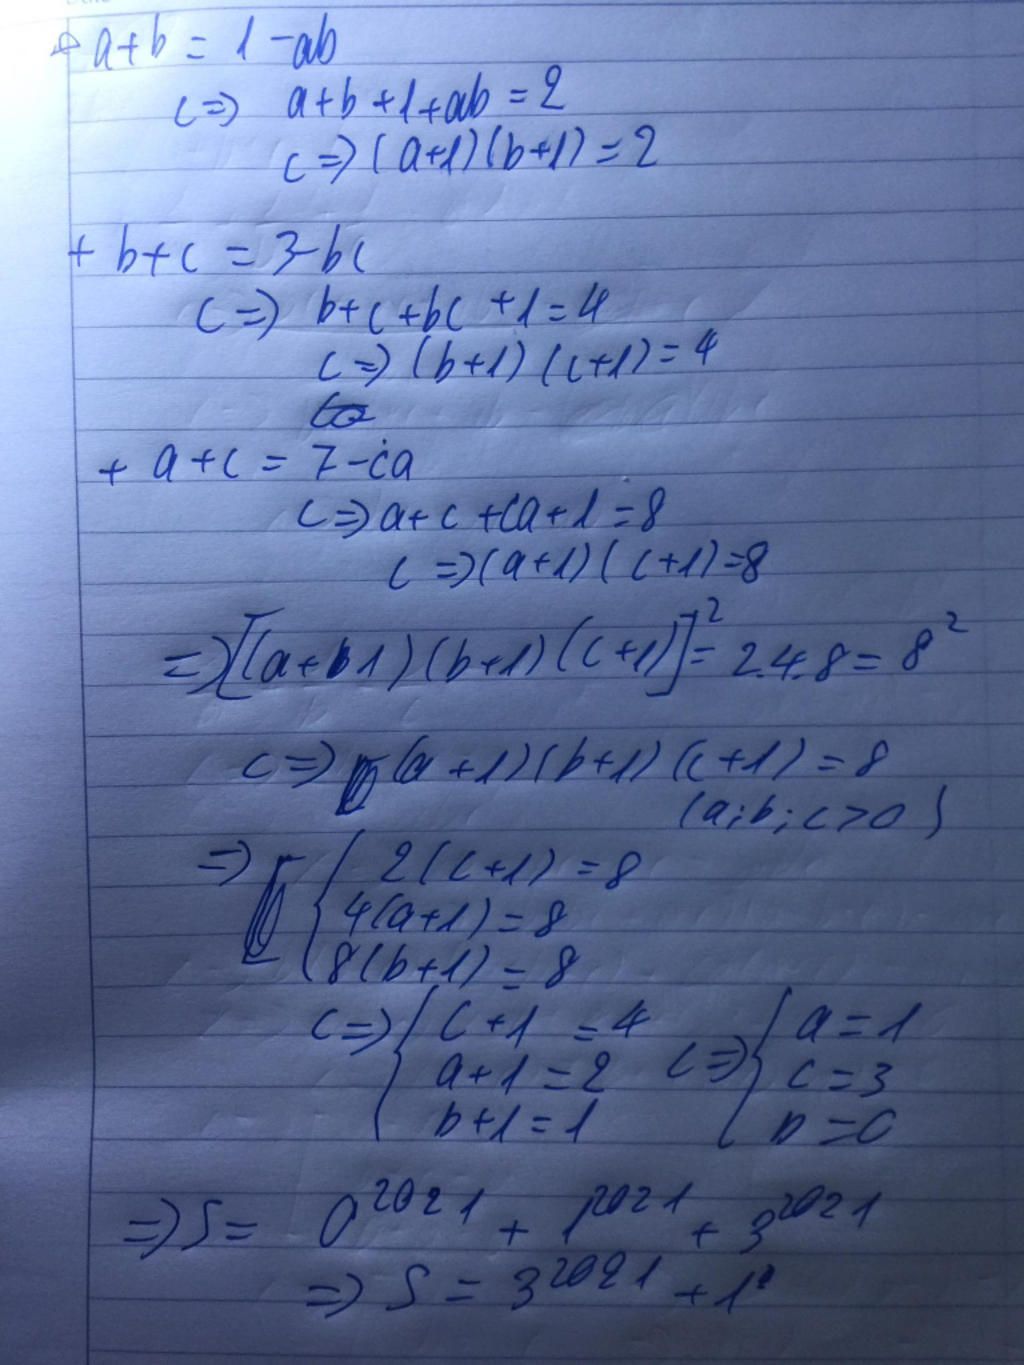 + a+b = 1-ab
<=> a+b+1+ab = 2
<=> (a+1)(b+1) = 2
+ b+c = 3-bc
<=> b+c+bc+1 = 4
<=> (b+1)(c+1) = 4
+ a+c = 7-ca
<=> a+c+ca+1 = 8
<=> (a+1)(c+1) = 8
=> [(a+1)(b+1)(c+1)]² = 2.4.8 = 8²
<=> (a+1)(b+1)(c+1) = 8
(a;b;c>0)
=> { 2(c+1) = 8
4(a+1) = 8
8(b+1) = 8
<=> { c+1 = 4 <=> { a = 1
a+1 = 2 c = 3
b+1 = 1 b = 0
=> S = 0^2021 + 1^2021 + 3^2021
=> S = 3^2021 + 1